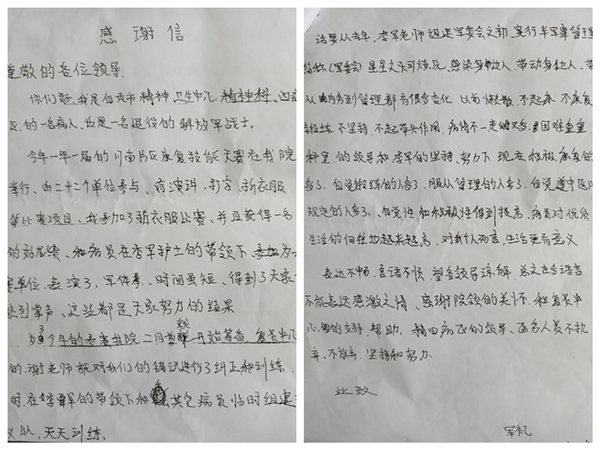 感谢信
尊敬的各位领导
你们好,我是伯克市精神卫生中心,精神科,四病
区,的一名病人,也是一名退役的解放军战士。
今年一年一届的川南片区康复技能大赛在我院
举行,由二十二个单位参与,有演讲,打字,新衣服
等比赛项目,我参加了新衣服比赛,并且获得一名
的好成绩,和病员在李军护士的带领下参加为
赛单位,表演了,军体拳,时间虽短,得到了大家
热烈掌声,这些都是大家努力的结果
开始筹备
的,谢老师就对我们的错误进行了纠正和训练,
时,在李军的带领下和其它病员临时组建
队,天天训练。
话要从去年,李军老师组建军委会之初,实行半军事管理
简称(军委)星星之火可燎原,感染身边他人,带动身边人,带
从内务到管理都有很大变化,以前懒散,不起床,不康复
锻炼,不坚持,不起带头作用,病情不一走的又多,困难重重
科室的领导和李军的坚持,努力下现在积极康复的
多了,自觉锻炼的人多了,服从管理的人多了,自觉遵守医院
规定的人多了,自觉性和积极性得到提高,病员对优质
生活的向往也越来越高,对我个人而言,生活更有意义
表达不中,言语不快,望各领导谅解,总之千言万语
不能表达感激之情,感谢院领的关怀,和康复中
心,的支持,帮助,精四病区的领导,医务人员不抛
弃,不放弃,坚持和努力。
此致
军礼